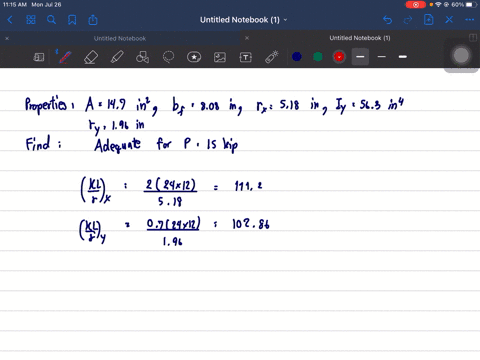 11:15 AM Mon Jul 26
60%
Untitled Notebook (1)
Untitled Notebook
Untitled Notebook (1)
Properties: A = 14.7 in², bf = 8.08 in, rx = 5.18 in, Iy = 56.3 in⁴
ry = 1.96 in
Find: Adequate for P = 15 kip
(KL/r)x = 2(24×12)/5.18 = 111.2
(KL/r)y = 0.7(24×12)/1.96 = 102.86